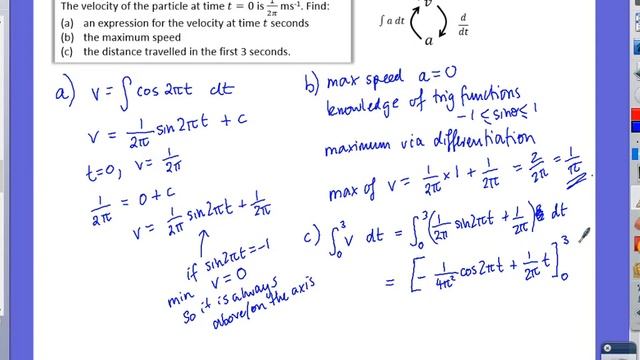 The velocity of the particle at time t = 0 is 1/2π ms⁻¹. Find:
(a) an expression for the velocity at time t seconds
(b) the maximum speed
(c) the distance travelled in the first 3 seconds.
∫ a dt
v
a
d/dt
a) v = ∫ cos 2πt dt
v = 1/2π sin 2πt + c
t=0, v = 1/2π
1/2π = 0 + c
v = 1/2π sin 2πt + 1/2π
if sin2πt = -1
min v = 0
so it is always
above/on the axis
b) max speed a=0
knowledge of trig functions
-1 ≤ sinθ ≤ 1
maximum via differentiation
max of v = 1/2π × 1 + 1/2π = 2/2π = 1/π
c) ∫₀³ v dt = ∫₀³ (1/2π sin2πt + 1/2π) dt
= [- 1/4π² cos 2πt + 1/2π t]₀³